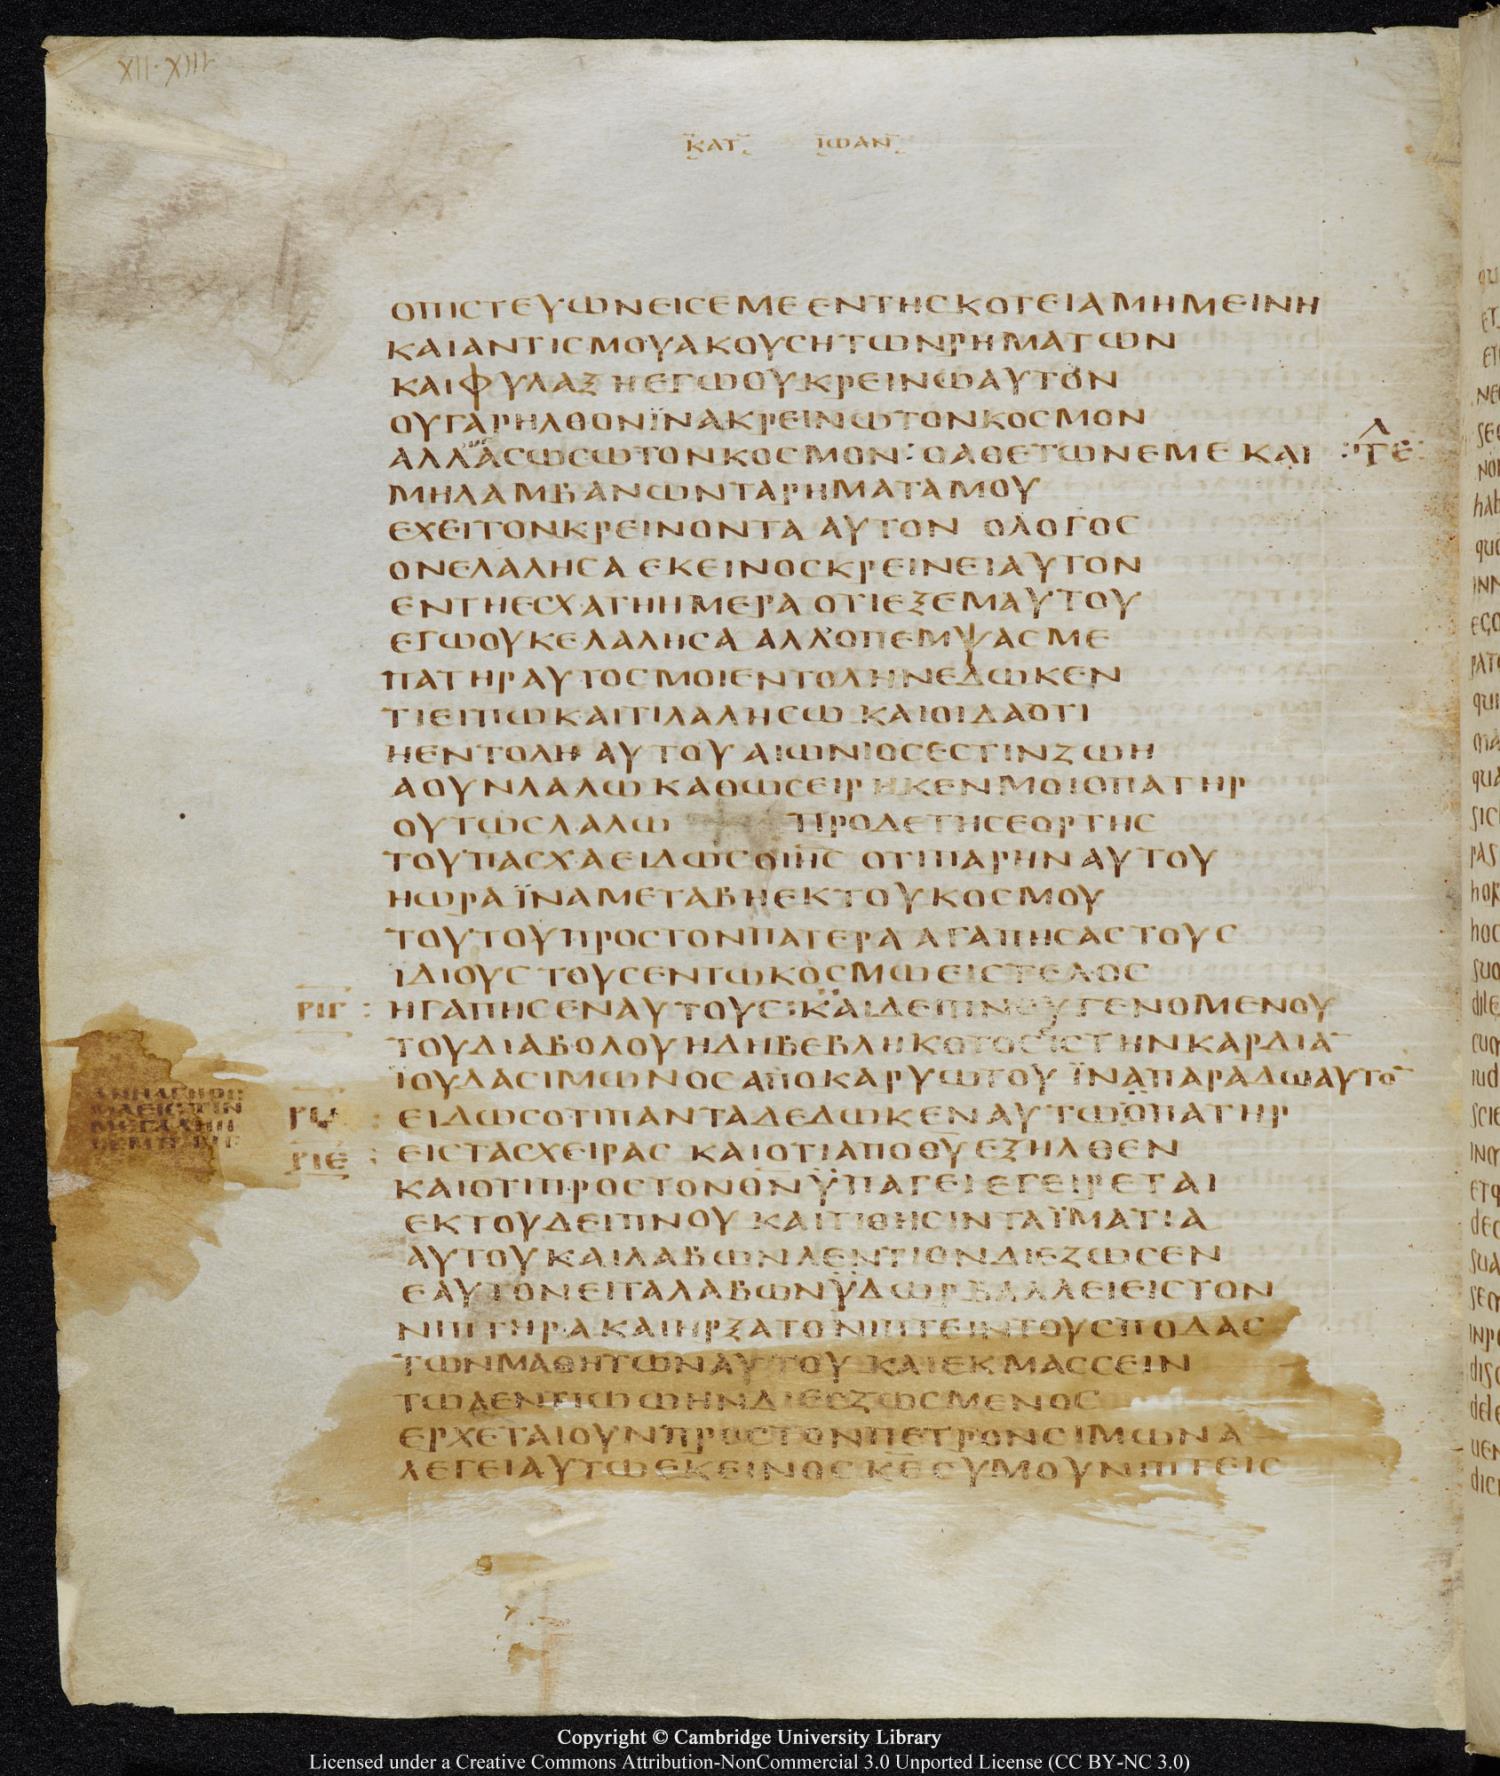 XII-XIII
ΚΑΤ ΙΩΑΝ
ΟΠΙΣΤΕΥΩΝΕΙΣΕΜΕΕΝΤΗΣΚΟΤΕΙΑΜΗΜΕΙΝΗ
ΚΑΙΑΝΤΙΣΜΟΥΑΚΟΥΣΗΤΩΝΡΗΜΑΤΩΝ
ΚΑΙΦΥΛΑΞΗΕΓΩΟΥΚΡΕΙΝΩΑΥΤΟΝ
ΟΥΓΑΡΗΛΘΟΝΪΝΑΚΡΕΙΝΩΤΟΝΚΟΣΜΟΝ
ΑΛΛΑΣΩΣΩΤΟΝΚΟΣΜΟΝ: ΟΑΘΕΤΩΝΕΜΕ ΚΑΙ
ΜΗΛΑΜΒΑΝΩΝΤΑΡΗΜΑΤΑΜΟΥ
ΕΧΕΙΤΟΝΚΡΕΙΝΟΝΤΑ ΑΥΤΟΝ ΟΛΟΓΟΣ
ΟΝΕΛΑΛΗΣΑ ΕΚΕΙΝΟΣΚΡΕΙΝΕΙΑΥΤΟΝ
ΕΝΤΗΕΣΧΑΤΗΗΜΕΡΑ ΟΤΙΕΞΕΜΑΥΤΟΥ
ΕΓΩΟΥΚΕΛΑΛΗΣΑ ΑΛΛΟΠΕΜΨΑΣΜΕ
ΠΑΤΗΡΑΥΤΟΣΜΟΙΕΝΤΟΛΗΝΕΔΩΚΕΝ
ΤΙΕΙΠΩΚΑΙΤΙΛΑΛΗΣΩ ΚΑΙΟΙΔΑΟΤΙ
ΗΕΝΤΟΛΗ ΑΥΤΟΥ ΑΙΩΝΙΟΣΕΣΤΙΝΖΩΗ
ΑΟΥΝΛΑΛΩ ΚΑΘΩΣΕΙΡΗΚΕΝΜΟΙΟΠΑΤΗΡ
ΟΥΤΩΣΛΑΛΩ ΠΡΟΔΕΤΗΣΕΟΡΤΗΣ
ΤΟΥΠΑΣΧΑΕΙΔΩΣΟΙΗΣ ΟΤΙΠΑΡΗΝΑΥΤΟΥ
ΗΩΡΑΪΝΑΜΕΤΑΒΗΕΚΤΟΥΚΟΣΜΟΥ
ΤΟΥΤΟΥΠΡΟΣΤΟΝΠΑΤΕΡΑ ΑΓΑΠΗΣΑΣΤΟΥΣ
ΪΔΙΟΥΣ ΤΟΥΣΕΝΤΩΚΟΣΜΩΕΙΣΤΕΛΟΣ
ΡΙΓ : ΗΓΑΠΗΣΕΝΑΥΤΟΥΣ:ΚΑΙΔΕΙΠΝΟΥΓΕΝΟΜΕΝΟΥ
ΤΟΥΔΙΑΒΟΛΟΥΗΔΗΒΕΒΛΗΚΟΤΟΣΕΙΣΤΗΝΚΑΡΔΙΑ̅
ΪΟΥΔΑΣΙΜΩΝΟΣΑΠΟΚΑΡΥΩΤΟΥ ΪΝΑΠΑΡΑΔΩΑΥΤΟ̅
ΕΙΔΩΣΟΤΙΠΑΝΤΑΔΕΔΩΚΕΝΑΥΤΩΟΠΑΤΗΡ
ΡΙΕ : ΕΙΣΤΑΣΧΕΙΡΑΣ ΚΑΙΟΤΙΑΠΟΘΥΕΞΗΛΘΕΝ
ΚΑΙΟΤΙΠΡΟΣΤΟΝΘΝΫΠΑΓΕΙ ΕΓΕΙΡΕΤΑΙ
ΕΚΤΟΥΔΕΙΠΝΟΥ ΚΑΙΤΙΘΗΣΙΝΤΑΪΜΑΤΙΑ
ΑΥΤΟΥΚΑΙΛΑΒΩΝΛΕΝΤΙΟΝΔΙΕΖΩΣΕΝ
ΕΑΥΤΟΝΕΙΤΑΛΑΒΩΝΫΔΩΡΒΑΛΛΕΙΕΙΣΤΟΝ
ΝΙΠΤΗΡΑΚΑΙΗΡΞΑΤΟΝΙΠΤΕΙΝΤΟΥΣΠΟΔΑΣ
ΤΩΝΜΑΘΗΤΩΝΑΥΤΟΥ ΚΑΙΕΚΜΑΣΣΕΙΝ
ΤΩΛΕΝΤΙΩΩΗΝΔΙΕΣΖΩΣΜΕΝΟΣ
ΕΡΧΕΤΑΙΟΥΝΠΡΟΣΤΟΝΠΕΤΡΟΝΣΙΜΩΝΑ
ΛΕΓΕΙΑΥΤΩΕΚΕΙΝΟΣΚΕΣΥΜΟΥΝΙΠΤΕΙΣ
Copyright © Cambridge University Library
Licensed under a Creative Commons Attribution-NonCommercial 3.0 Unported License (CC BY-NC 3.0)